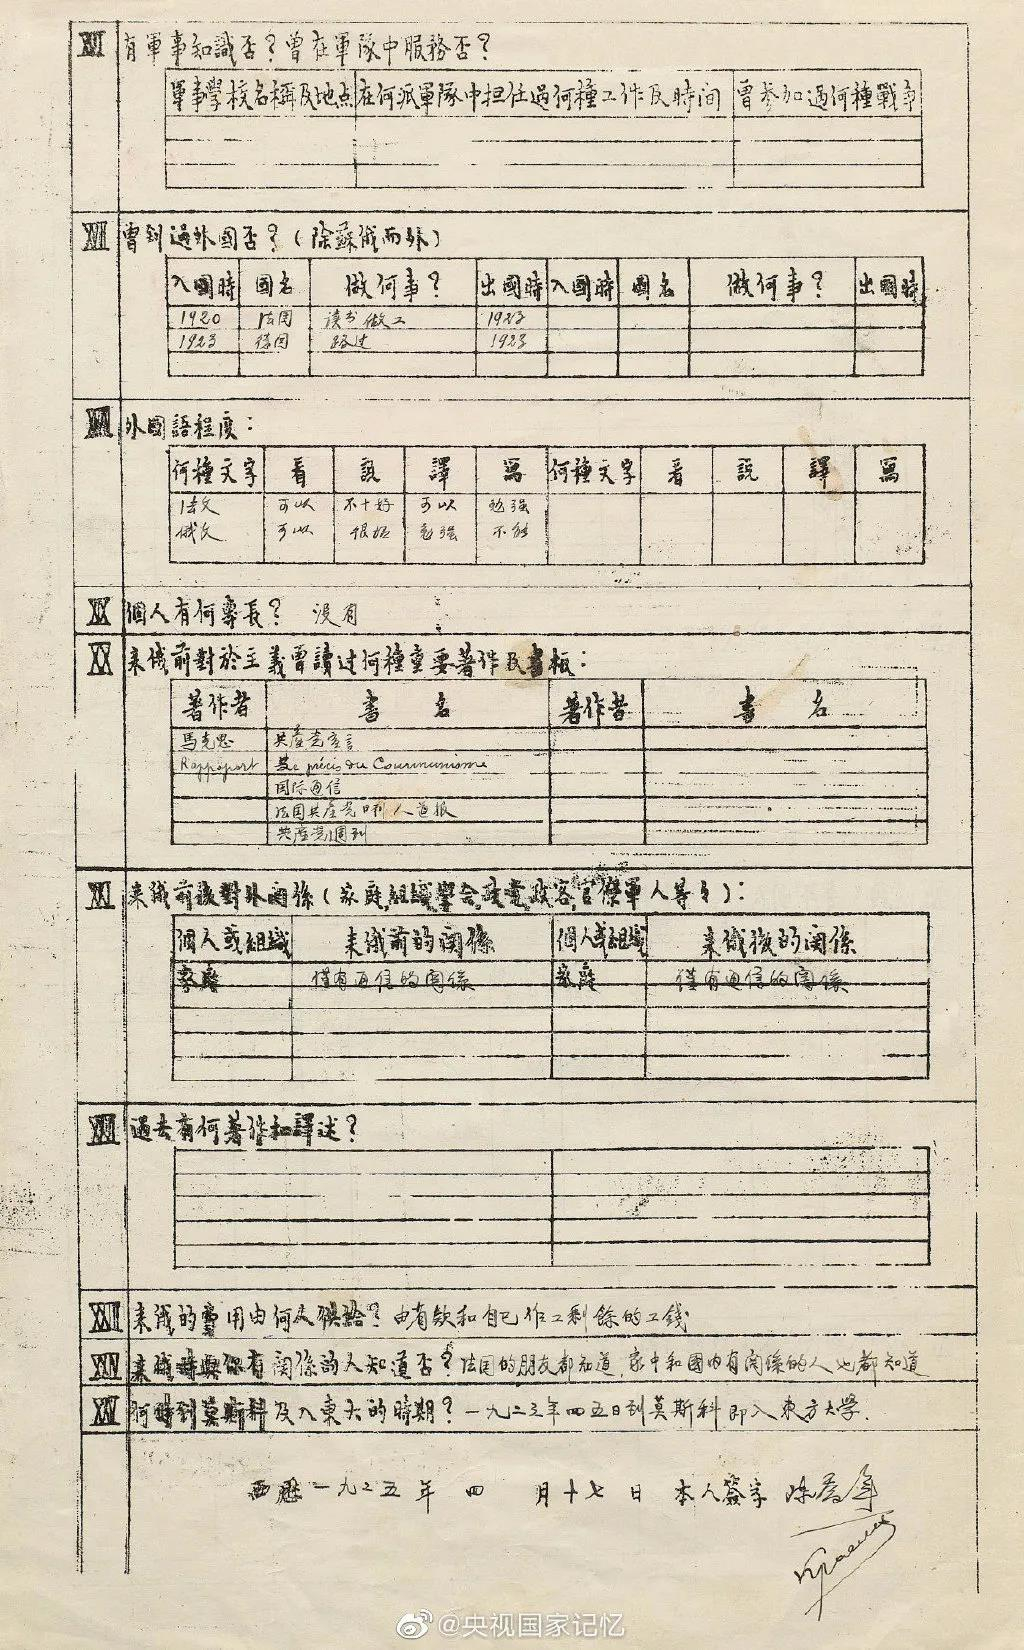 有軍事知識否？曾在軍隊中服務否？
軍事學校名稱及地点 在何派軍隊中担任過何種工作及時間 曾参加過何種戰爭
曾到過外國否？（除蘇俄而外）
入國時 國名 做何事？ 出國時 入國時 國名 做何事？ 出國時
1920 法国 读书做工 1923
1923 德国 路过 1923
外國語程度：
何種文字 看 說 譯 寫 何種文字 看 說 譯 寫
法文 可以 不十好 可以 勉强
俄文 可以 很坏 勉强 不能
XIX 個人有何專長？ 没有
XX 来俄前對於主義曾讀过何種重要著作及書板：
著作者 書名 著作者 書名
馬克思 共產党宣言
Rappoport précis du Communisme
国际通信
法国共産党 人道报
共產党週刊
XXI 来俄前後對外関係（家庭,組織,學会,政黨,政客,官僚軍人等々）：
個人或組織 来俄前的関係 個人或組織 来俄後的関係
家庭 僅有通信的関係 家庭 僅有通信的関係
XXII 過去有何著作和譯述？
来俄的費用由何處供給？由存欵和自己作工剩餘的工錢
XXIV 来俄時與你有関係的人知道否？法国的朋友都知道,家中和國内有関係的人也都知道
XXV 何時到莫斯科及入東大的時期？一九二三年四五日到莫斯科即入東方大学.
西歷一九二五年 四 月十七日 本人簽字 陈喬年
@央视国家记忆